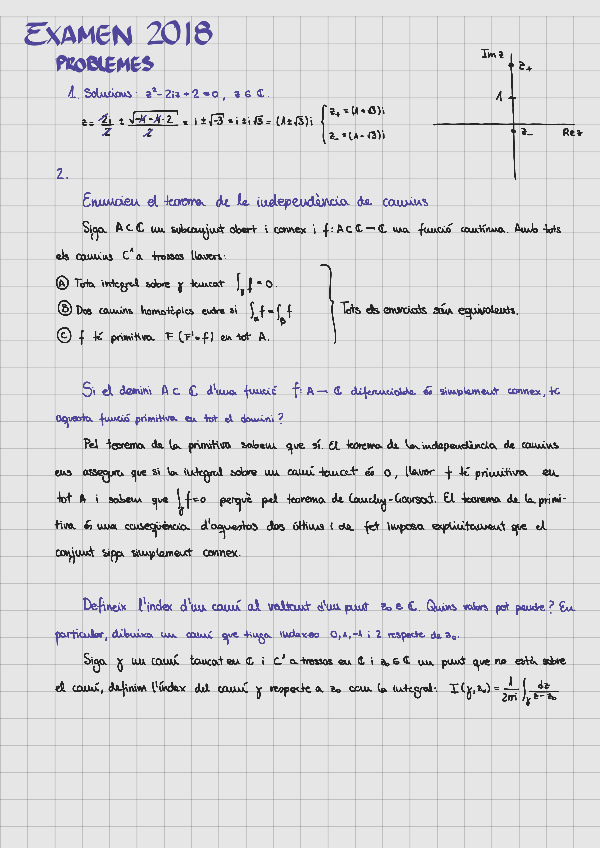 EXAMEN 2018
PROBLEMES
1. Solucions: z²-2iz+2=0, z ∈ ℂ.
z = 2i/2 ± √(-4-4·2)/2 = i ± √-3 = i ± i√3 = (1±√3)i { z₊ = (1+√3)i
z₋ = (1-√3)i
Im z
z₊
1
z₋
Re z
2.
Enuncieu el teorema de la independència de camins
Siga A⊂ℂ un subconjunt obert i connex i f: A⊂ℂ→ℂ una funció contínua. Amb tots
els camins C¹ a trossos llavors:
Ⓐ Tota integral sobre γ tancat ∫γ f = 0.
Ⓑ Dos camins homotòpics entre si ∫α f = ∫β f
Ⓒ f té primitiva F (F'=f) en tot A.
Tots els enunciats són equivalents.
Si el domini A⊂ℂ d'una funció f: A→ℂ diferenciable és simplement connex, té
aquesta funció primitiva en tot el domini?
Pel teorema de la primitiva sabem que sí. El teorema de la independència de camins
ens assegura que si la integral sobre un camí tancat és 0, llavor f té primitiva en
tot A i sabem que ∫γ f=0 perquè pel teorema de Cauchy-Goursat. El teorema de la primi-
tiva és una conseqüència d'aquestos dos últims i de fet imposa explícitament que el
conjunt siga simplement connex.
Defineix l'índex d'un camí al voltant d'un punt z₀ ∈ ℂ. Quins valors pot pendre? En
particular, dibuixa un camí que tinga índexos 0,1,-1 i 2 respecte de z₀.
Siga γ un camí tancat en ℂ i C¹ a trossos en ℂ i z₀ ∈ ℂ un punt que no està sobre
el camí, definim l'índex del camí γ respecte a z₀ com la integral: I(γ,z₀) = 1/2πi ∫γ dz/z-z₀